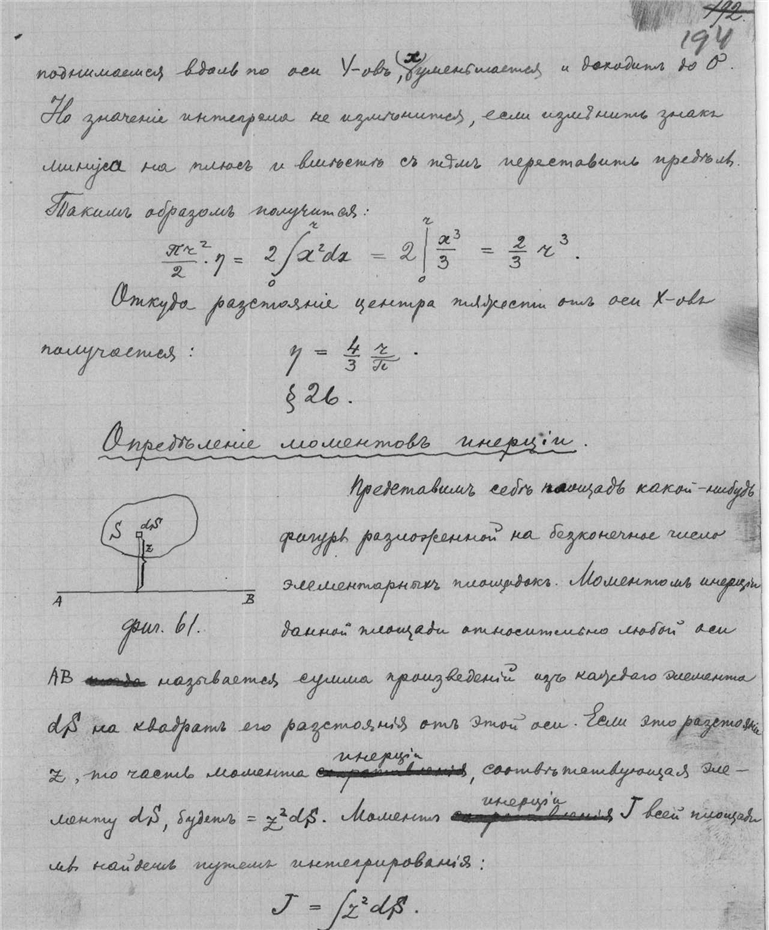 192.
194
поднимаемся вдоль по оси Y-овъ, (x) уменьшается и доходитъ до 0.
Но значеніе интеграла не измѣнится, если измѣнить знакъ
минуса на плюсъ и вмѣстѣ съ тѣмъ переставить предѣлы.
Такимъ образомъ получится:
πr²/2 · η = 2 ∫₀ʳ x²dx = 2 |₀ʳ x³/3 = 2/3 r³.
Откуда разстояніе центра тяжести отъ оси X-овъ
получается: η = 4/3 r/π.
§ 26.
Опредѣленіе моментовъ инерціи.
Представимъ себѣ площадь какой-нибудь
фигуры разложенной на безконечное число
элементарныхъ площадокъ. Моментомъ инерціи
данной площади относительно любой оси
S dS
z
A B
фиг. 61.
AB называется сумма произведеній изъ каждаго элемента
dS на квадратъ его разстоянія отъ этой оси. Если это разстояніе
z, то часть момента инерціи, соотвѣтствующая эле-
менту dS, будетъ = z²dS. Моментъ инерціи J всей площади
мы найдемъ путемъ интегрированія:
J = ∫z²dS.